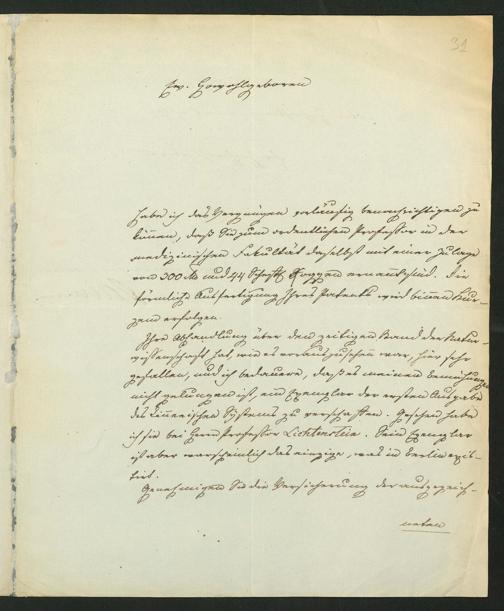 31
Ew. Hochwohlgeboren
habe ich das Vergnügen vorläufig benachrichtigen zu
können, daß Sie zum ordentlichen Professor in der
medizinischen Fakultät daselbst mit einer Zulage
von 300 und 44 Scheffl Roggen ernannt sind. Die
förmliche Ausfertigung Ihres Patents wird binnen Kur-
zem erfolgen.
Ihre Abhandlung über den zeitigen Stand der Natur-
wissenschaft hat, wie es vorauszusehen war, hier sehr
gefallen, und ich bedauere, daß es meinen Bemühungen
nicht gelungen ist, ein Exemplar der ersten Ausgabe
des Linneischen Systems zu verschaffen. Gesehen habe
ich sie bei Herrn Professor Lichtenstein. Sein Exemplar
ist aber warscheinlich das einzige, was in Berlin exis-
tirt.
Genehmigen Sie die Versicherung der ausgezeich-
neten